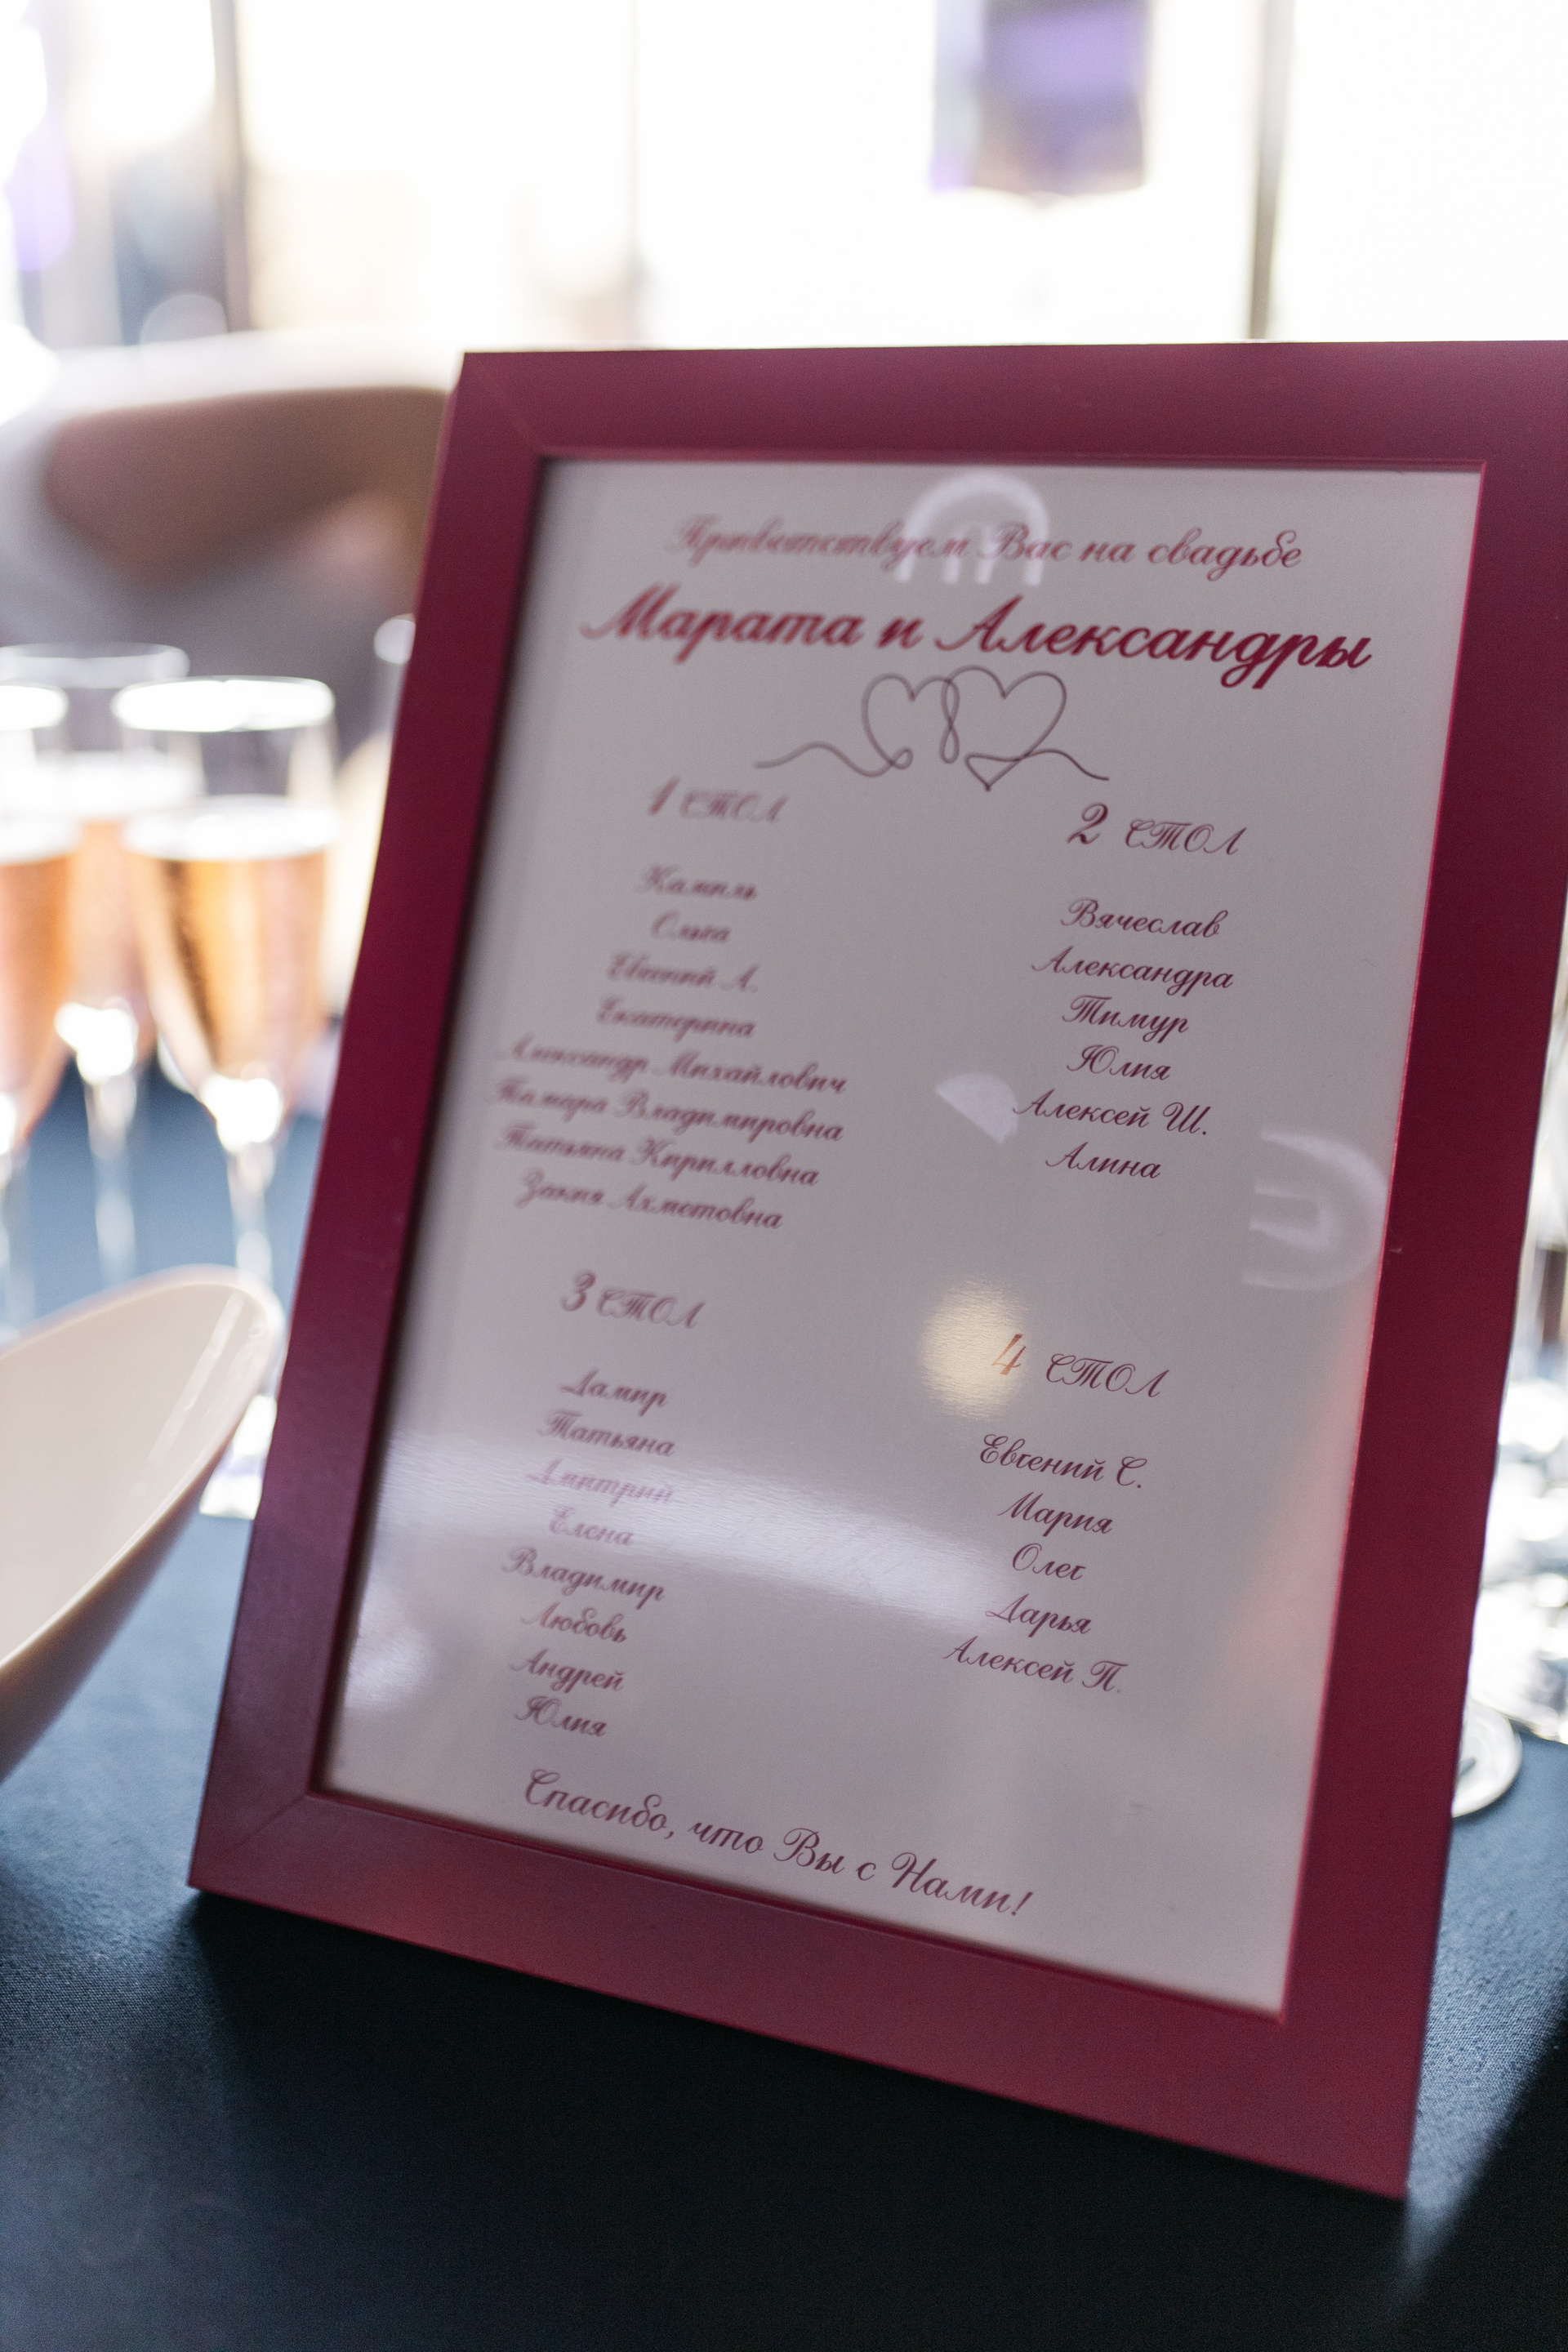 Приветствуем Вас на свадьбе
Марата и Александры
1 стол
Камиль
Ольга
Евгений А.
Екатерина
Александр Михайлович
Тамара Владимировна
Татьяна Кирилловна
Закия Ахметовна
2 стол
Вячеслав
Александра
Тимур
Юлия
Алексей Ш.
Алина
3 стол
Дамир
Татьяна
Дмитрий
Елена
Владимир
Любовь
Андрей
Юлия
4 стол
Евгений С.
Мария
Олег
Дарья
Алексей П.
Спасибо, что Вы с Нами!